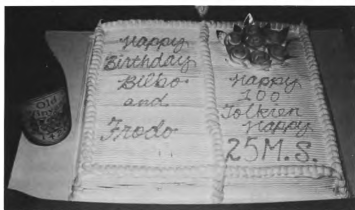 Happy
Birthday
Bilbo
and
Frodo
Happy
100
Tolkien
Happy
25 M.S.
Old